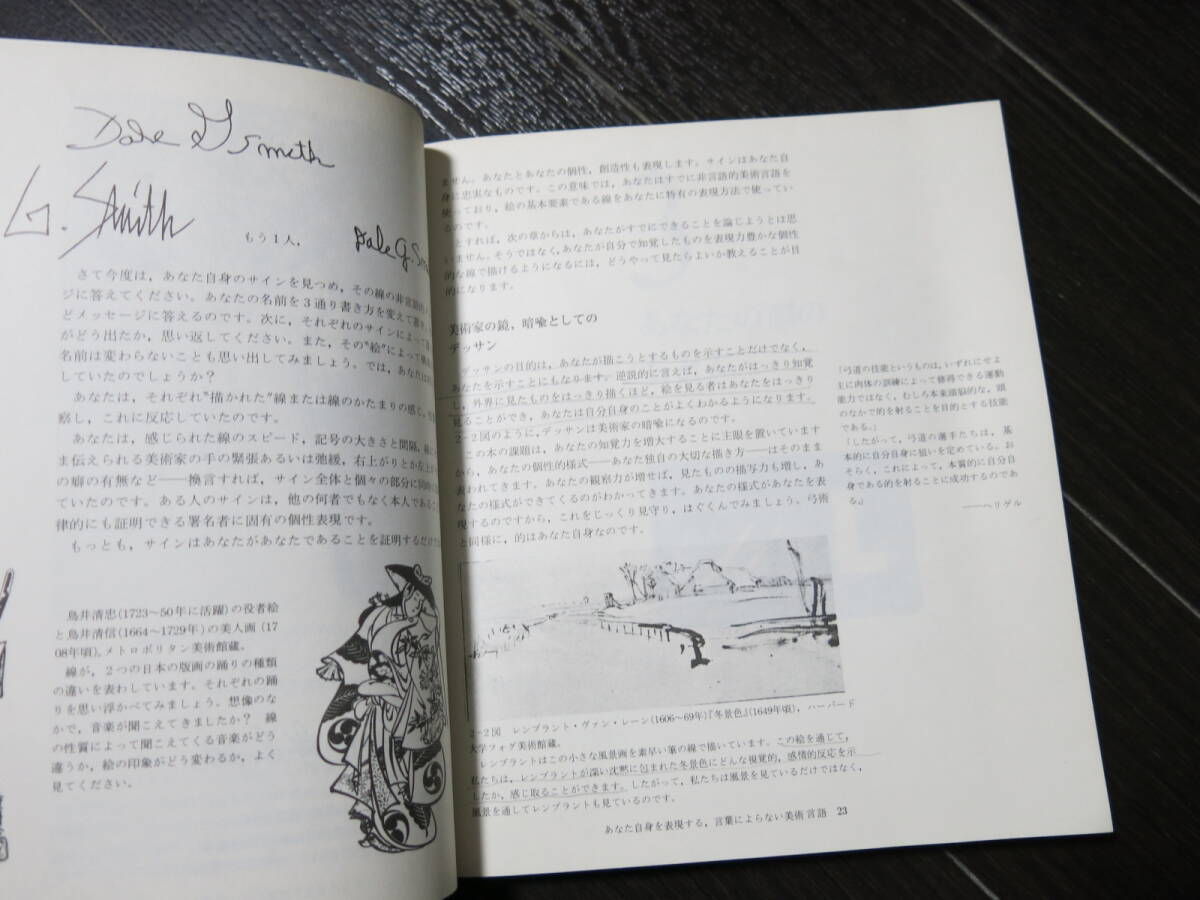 Dale G Smith
G. Smith
もう1人,
Dale G. Sm
さて今度は，あなた自身のサインを見つめ，その線の非言語的
ジに答えてください。あなたの名前を3通り書き方を変えて書き，
どメッセージに答えるのです。次に，それぞれのサインによって
がどう出たか，思い返してください。また，その“絵”によって
名前は変わらないことも思い出してみましょう。では，あなたは
していたのでしょうか？
あなたは，それぞれ“描かれた”線または線のかたまりの感じ，
察し，これに反応していたのです。
あなたは，感じられた線のスピード，記号の大きさと間隔，
ま伝えられる美術家の手の緊張あるいは弛緩，右上がりとか左上が
の癖の有無など——換言すれば，サイン全体と個々の部分に同時に
ていたのです。ある人のサインは，他の何者でもなく本人であるこ
律的にも証明できる署名者に固有の個性表現です。
もっとも，サインはあなたがあなたであることを証明するだけで
鳥井清忠(1723〜50年に活躍)の役者絵
と鳥井清信(1664〜1729年)の美人画(17
08年頃)。メトロポリタン美術館蔵。
線が，2つの日本の版画の踊りの種類
の違いを表わしています。それぞれの踊
りを思い浮かべてみましょう。想像のな
かで，音楽が聞こえてきましたか？ 線
の性質によって聞こえてくる音楽がどう
違うか，絵の印象がどう変わるか，よく
見てください。
ません。あなたとあなたの個性，創造性も表現します。サインはあなた自
身に忠実なものです。この意味では，あなたはすでに非言語的美術言語を
使っており，絵の基本要素である線をあなたに特有の表現方法で使ってい
るのです。
とすれば，次の章からは，あなたがすでにできることを論じようとは思
いません。そうではなく，あなたが自分で知覚したものを表現力豊かな個性
的な線で描けるようになるには，どうやって見たらよいか教えることが目
的になります。
美術家の鏡，暗喩としての
デッサン
デッサンの目的は，あなたが描こうとするものを示すことだけでなく，
あなたを示すことにもなります。逆説的に言えば，あなたがはっきり知覚
し，外界に見たものをはっきり描くほど，絵を見る者はあなたをはっきり
見ることができ，あなたは自分自身のことがよくわかるようになります。
2-2図のように，デッサンは美術家の暗喩になるのです。
この本の課題は，あなたの知覚力を増大することに主眼を置いています
から，あなたの個性的様式——あなた独自の大切な描き方——はそのまま
表われてきます。あなたの観察力が増せば，見たものの描写力も増し，あ
なたの様式ができてくるのがわかってきます。あなたの様式があなたを表
現するのですから，これをじっくり見守り，はぐくんでみましょう。弓術
と同様に，的はあなた自身なのです。
「弓道の技能というものは，いずれにせよ
主に肉体の訓練によって修得できる運動
能力ではなく，むしろ本来頭脳的な，頭
のなかで的を射ることを目的とする技能
である。」
「したがって，弓道の選手たちは，基
本的に自分自身に狙いを定めている。お
そらく，これによって，本質的に自分自
身である的を射ることに成功するのであ
る。」
——ヘリゲル
2-2図 レンブラント・ヴァン・レーン(1606〜69年)『冬景色』(1649年頃)，ハーバード
大学フォグ美術館蔵。
レンブラントはこの小さな風景画を素早い筆の線で描いています。この絵を通じて，
私たちは，レンブラントが深い沈黙に包まれた冬景色にどんな視覚的，感情的反応を示
したか，感じ取ることができます。したがって，私たちは風景を見ているだけではなく，
風景を通してレンブラントも見ているのです。
あなた自身を表現する，言葉によらない美術言語 23